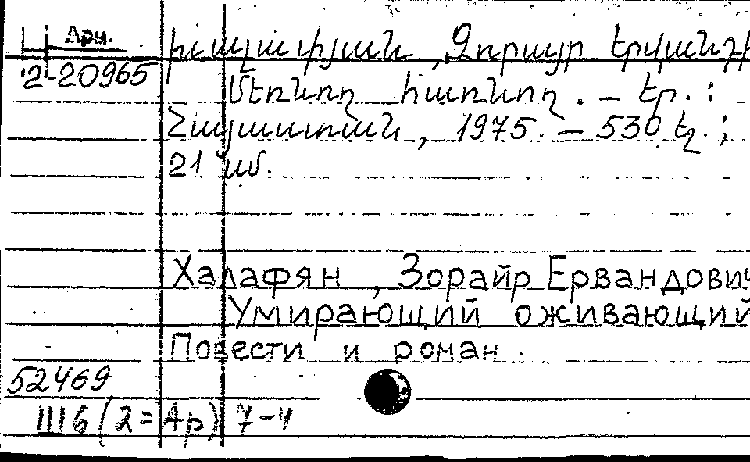 Арм.
Խալափյան, Զորայր Երվանդի
2-20965
Մեռնող հառնող. – Եր.:
Հայաստան, 1975. – 530 էջ.;
21 սմ.
Халафян, Зорайр Ервандович
Умирающий оживающий
Повести и роман.
52469
Ш6(2=Ар)7-4